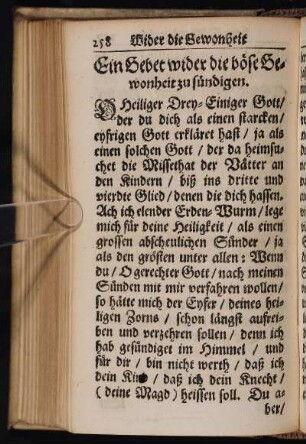 258 Wider die Gewonheit
Ein Gebet wider die böse Ge-
wonheit zu sündigen.
O Heiliger Drey-Einiger Gott/
der du dich als einen starcken/
eyfrigen Gott erkläret hast / ja als
einen solchen Gott / der da heimsu-
chet die Missethat der Vätter an
den Kindern / biß ins dritte und
vierdte Glied / denen die dich hassen.
Ach ich elender Erden-Wurm / lege
mich für deine Heiligkeit / als einen
grossen abscheulichen Sünder / ja
als den grösten unter allen: Wenn
du / O gerechter Gott / nach meinen
Sünden mit mir verfahren wollen/
so hätte mich der Eyfer / deines hei-
ligen Zorns / schon längst aufrei-
ben und verzehren sollen / denn ich
hab gesündiget im Himmel / und
für dir / bin nicht werth / daß ich
dein Kind / daß ich dein Knecht /
(deine Magd) heissen soll. Du a-
ber/